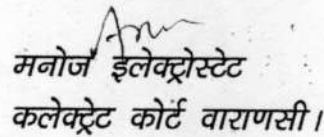 मनोज इलेक्ट्रोस्टेट
कलेक्ट्रेट कोर्ट वाराणसी।